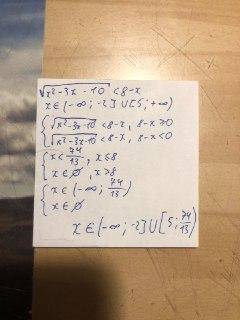 √x²-3x-10 < 8-x
x∈(-∞; -2]∪[5; +∞)
{ √x²-3x-10 < 8-x, 8-x≥0
√x²-3x-10 < 8-x, 8-x<0
{ x<74/13, x≤8
x∈∅, x>8
{ x∈(-∞; 74/13)
x∈∅
x∈(-∞; -2]∪[5; 74/13)